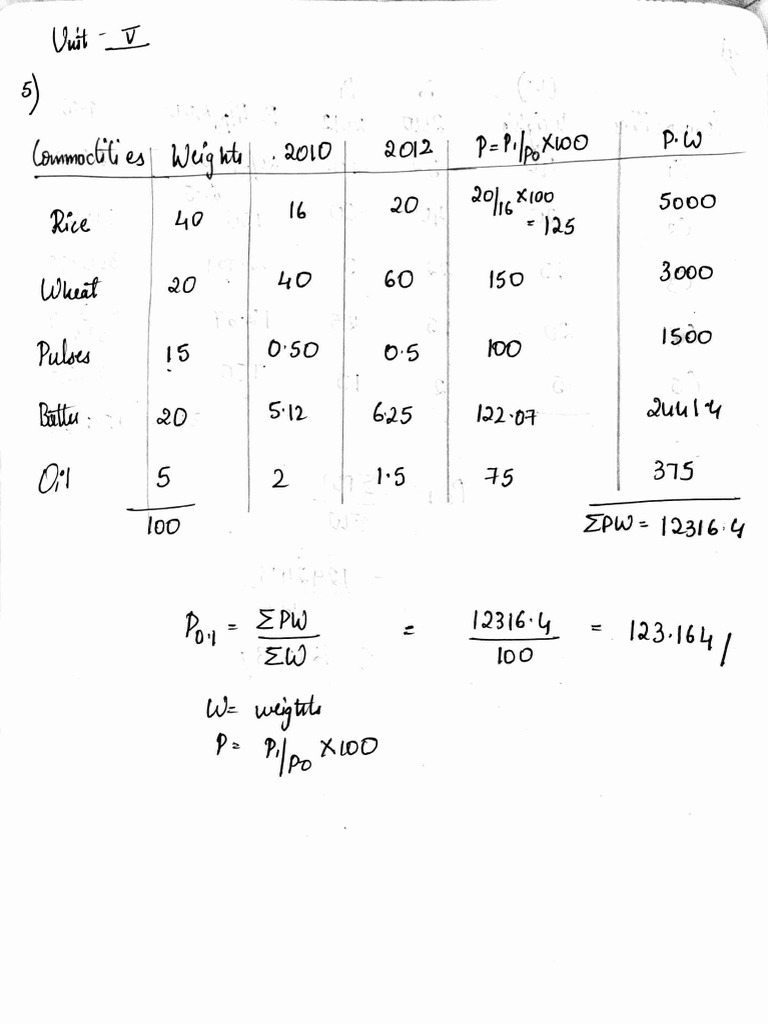 Unit - V
5)
Commodities Weights 2010 2012 P = P1/P0 × 100 P.W
Rice 40 16 20 20/16 × 100 = 125 5000
Wheat 20 40 60 150 3000
Pulses 15 0.50 0.5 100 1500
20 5.12 6.25 122.07 2441.4
Oil 5 2 1.5 75 375
100 ΣPW = 12316.4
P0.1 = ΣPW / ΣW = 12316.4 / 100 = 123.164/
W = weights
P = P1/P0 × 100